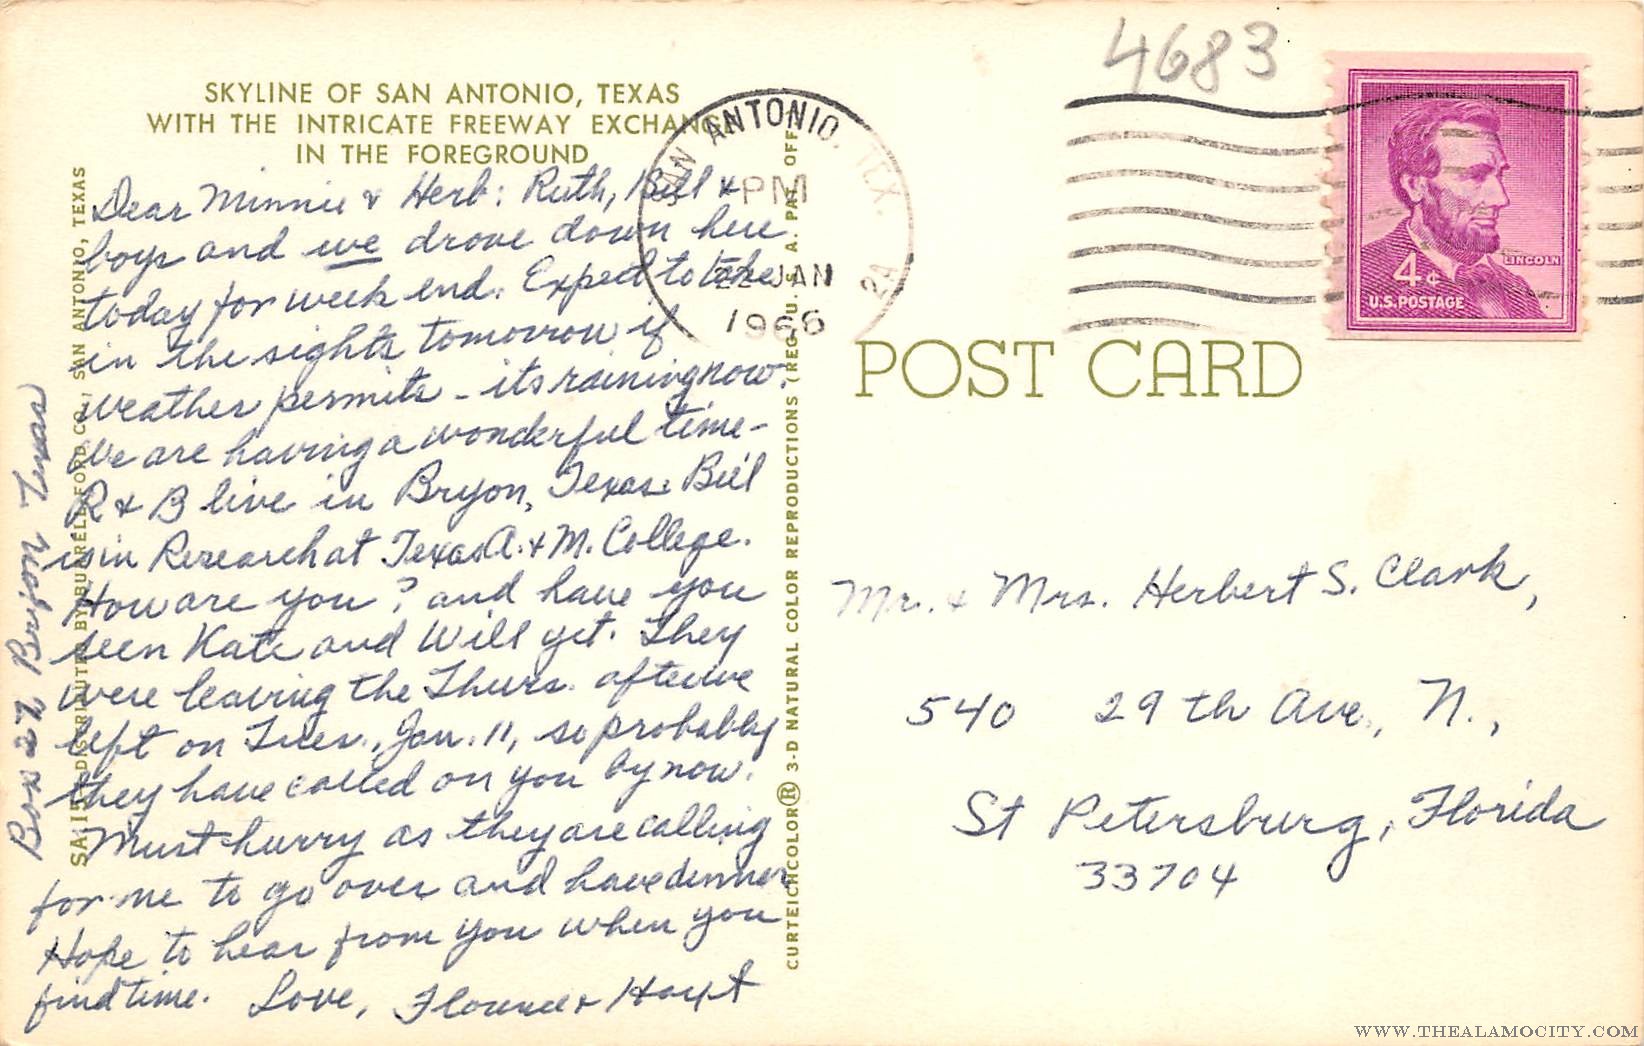 4683
SKYLINE OF SAN ANTONIO, TEXAS
WITH THE INTRICATE FREEWAY EXCHANGE
IN THE FOREGROUND
SAN ANTONIO, TEX.
PM
22 JAN
1966
2A
LINCOLN
4¢
U.S. POSTAGE
POST CARD
Dear Minnie & Herb: Ruth, Bill &
boys and we drove down here
today for week end. Expect to take
in the sights tomorrow if
weather permits - its raining now.
We are having a wonderful time -
R & B live in Bryon, Texas. Bill
is in Research at Texas A. & M. College.
How are you? and have you
seen Kate and Will yet. They
were leaving the Thurs. after we
left on Tues., Jan. 11, so probably
they have called on you by now.
Must hurry as they are calling
for me to go over and have dinner
Hope to hear from you when you
find time. Love, Florence & Hoyt
Box 27 Bryon Texas
SA-15-DISTRIBUTED BY BURRELLEFORD CO., SAN ANTONIO, TEXAS
CURTEICHCOLOR® 3-D NATURAL COLOR REPRODUCTIONS (REG. U. S. A. PAT. OFF.
Mr. & Mrs. Herbert S. Clark,
540 29th Ave., N.,
St Petersburg, Florida
33704
WWW.THEALAMOCITY.COM